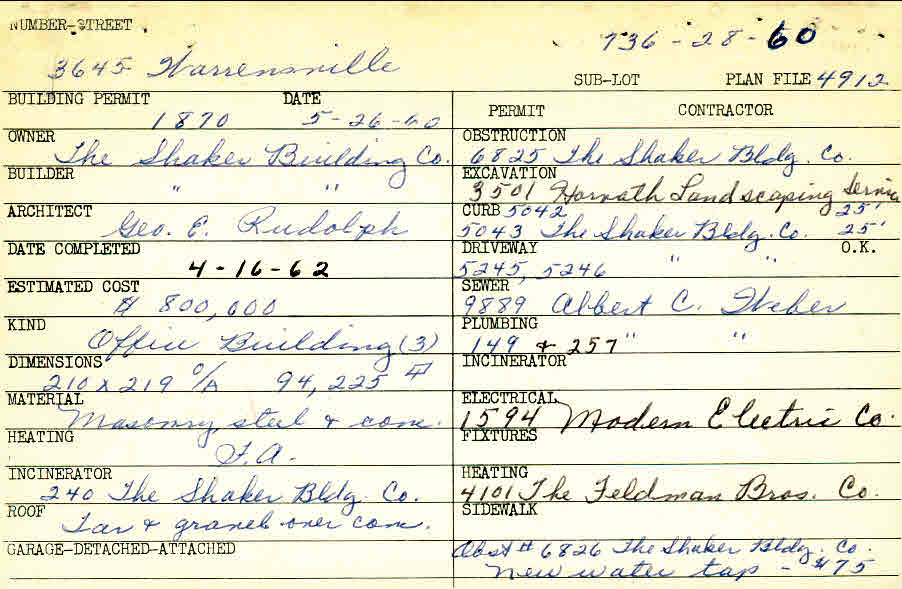 NUMBER-STREET
736-28-60
3645 Warrensville
SUB-LOT PLAN FILE 4912
BUILDING PERMIT DATE
1870 5-26-60
OWNER
The Shaker Building Co.
BUILDER
" "
ARCHITECT
Geo. E. Rudolph
DATE COMPLETED
4-16-62
ESTIMATED COST
$ 800,000
KIND
Office Building (3)
DIMENSIONS
210 x 219 O/A 94,225
MATERIAL
Masonry, steel & conc.
HEATING
F.A.
INCINERATOR
240 The Shaker Bldg. Co.
ROOF
Tar & gravel over conc.
GARAGE-DETACHED-ATTACHED
PERMIT CONTRACTOR
OBSTRUCTION
6825 The Shaker Bldg. Co.
EXCAVATION
3501 Horvath Landscaping Service
CURB 5042 25'
5043 The Shaker Bldg. Co. 25'
DRIVEWAY O.K.
5245, 5246 " "
SEWER
9889 Albert C. Weber
PLUMBING
149 & 257 " "
INCINERATOR
ELECTRICAL
1594 Modern Electric Co.
FIXTURES
HEATING
4101 The Feldman Bros. Co.
SIDEWALK
Obst # 6826 The Shaker Bldg. Co.
New water tap - $75